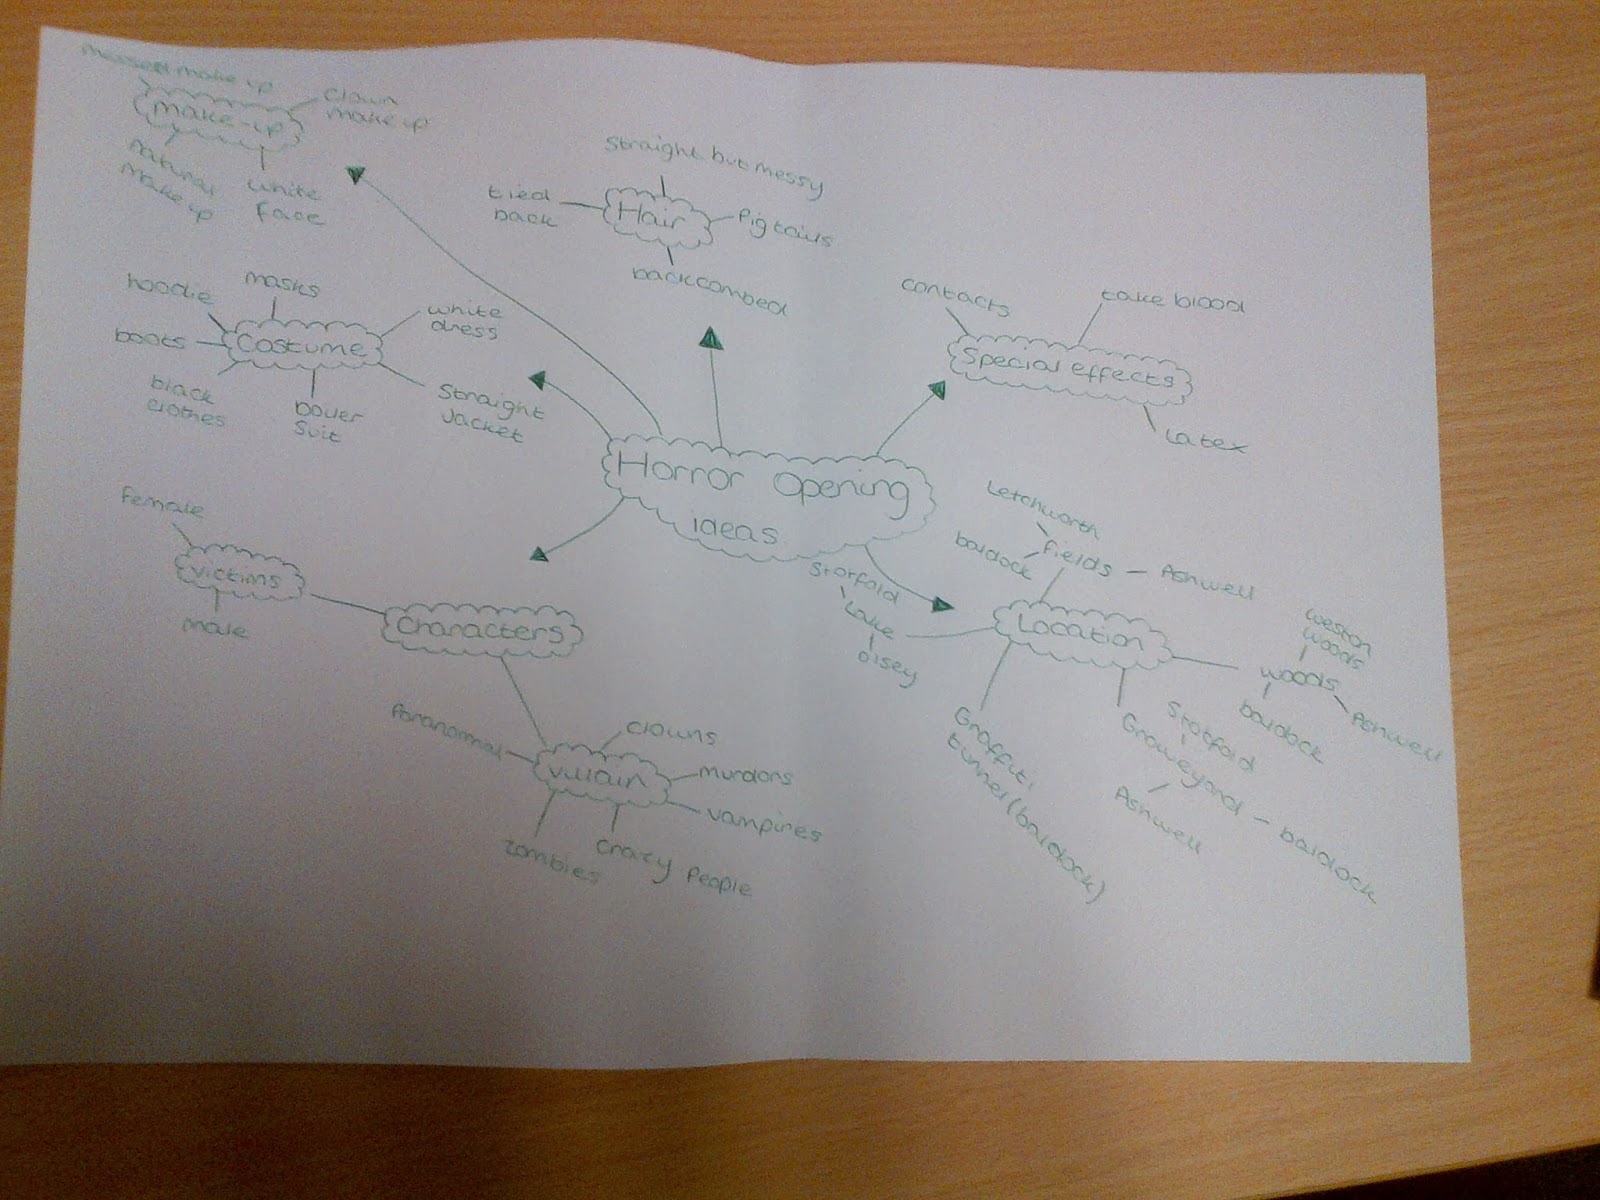 messed make up
clown
make up
make-up
natural
make up
white
face
straight but messy
tied
back
Hair
Pigtails
backcombed
hoodie
masks
white
dress
boots
Costume
black
clothes
boiler
suit
Straight
Jacket
contacts
fake blood
Special effects
Latex
Horror Opening
ideas
female
victims
male
Characters
Paranormal
clowns
villain
murdors
vampires
zombies
crazy People
Letchworth
baldock
fields - Ashwell
Stotfold
Lake
oisey
Location
weston
woods
woods
baldock
Ashwell
Stotfold
Graveyard - baldock
Ashwell
Graffiti
tunnel (baldock)